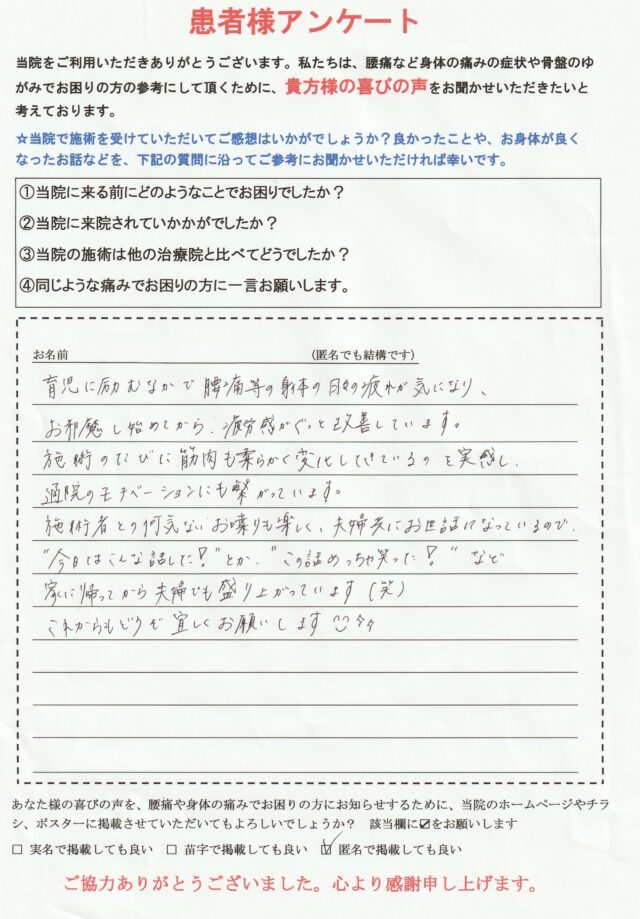 患者様アンケート
当院をご利用いただきありがとうございます。私たちは、腰痛など身体の痛みの症状や骨盤のゆ
がみでお困りの方の参考にして頂くために、貴方様の喜びの声をお聞かせいただきたいと
考えております。
☆当院で施術を受けていただいてご感想はいかがでしょうか？良かったことや、お身体が良く
なったお話などを、下記の質問に沿ってご参考にお聞かせいただければ幸いです。
①当院に来る前にどのようなことでお困りでしたか？
②当院に来院されていかかがでしたか？
③当院の施術は他の治療院と比べてどうでしたか？
④同じような痛みでお困りの方に一言お願いします。
お名前 （匿名でも結構です）
育児に励むなかで腰痛等の身体の日々の疲れが気になり、
お邪魔し始めてから、疲労感がぐっと改善しています。
施術のたびに筋肉も柔らかく変化してきているのを実感し、
通院のモチベーションにも繋がっています。
施術者との何気ないお喋りも楽しく、夫婦共にお世話になっているので、
"今日はこんな話した！" とか、"この話めっちゃ笑った！" など
家に帰ってから夫婦でも盛り上がっています(笑)
これからもどうぞ宜しくお願いします
あなた様の喜びの声を、腰痛や身体の痛みでお困りの方にお知らせするために、当院のホームページやチラ
シ、ポスターに掲載させていただいてもよろしいでしょうか？ 該当欄に☑をお願いします
□ 実名で掲載しても良い □ 苗字で掲載しても良い ☑ 匿名で掲載しても良い
ご協力ありがとうございました。心より感謝申し上げます。